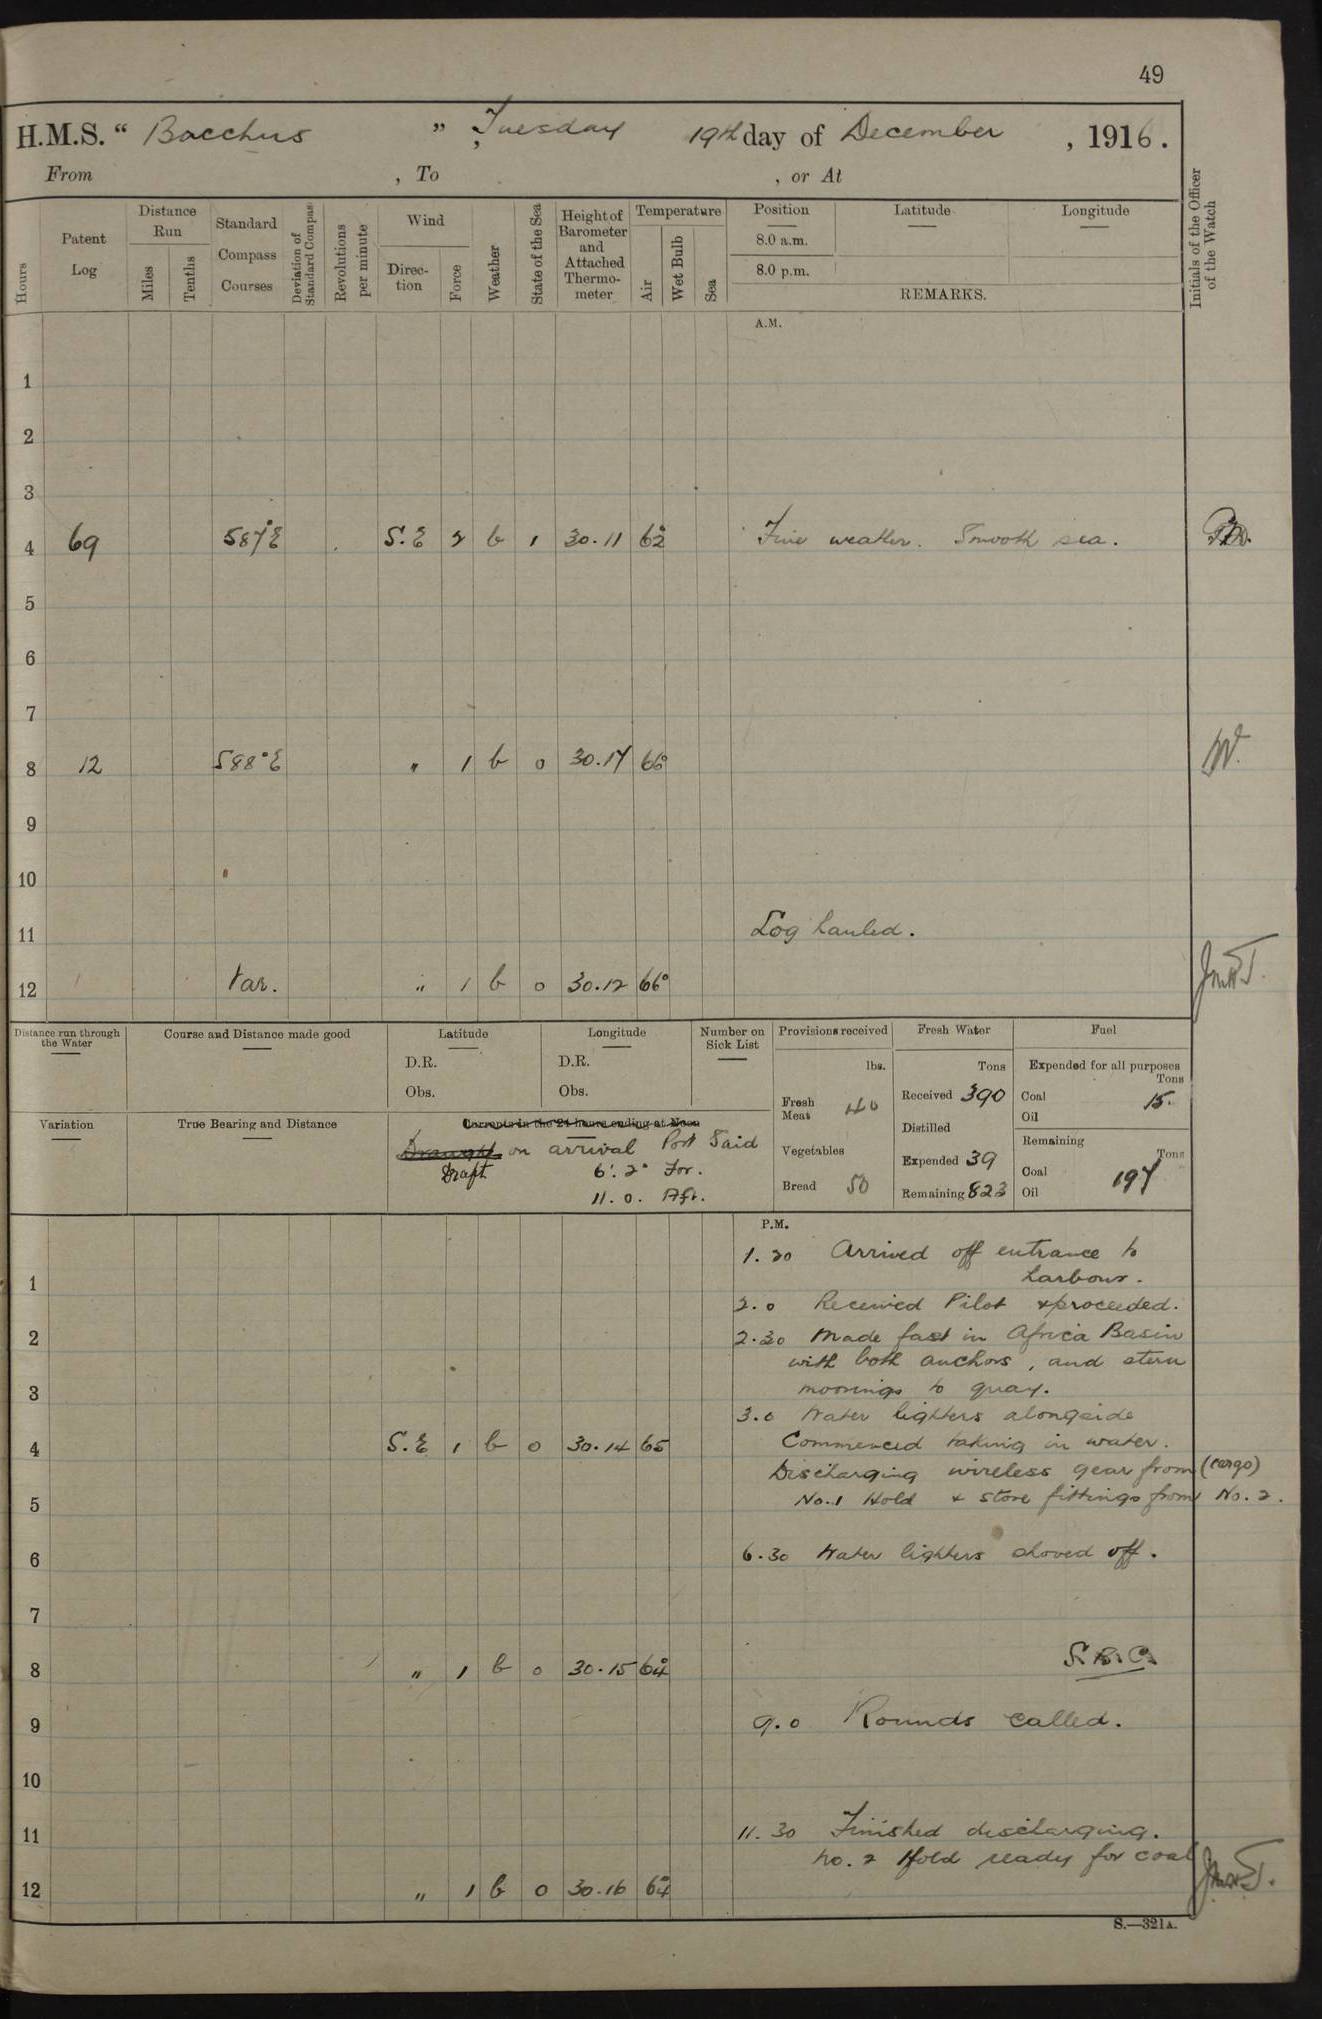 49
H.M.S. “ Bacchus ”, Tuesday 19th day of December , 1916.
From , To , or At
Hours
Patent Log
Distance Run
Miles
Tenths
Standard Compass Courses
Deviation of Standard Compass
Revolutions per minute
Wind
Direc-tion
Force
Weather
State of the Sea
Height of Barometer and Attached Thermo-meter
Temperature
Air
Wet Bulb
Sea
Position
8.0 a.m.
8.0 p.m.
Latitude
Longitude
REMARKS.
Initials of the Officer of the Watch
A.M.
1
2
3
4 69 S87°E S.E 2 b 1 30.11 62° Fine weather. Smooth sea.
5
6
7
8 12 S88°E " 1 b 0 30.14 66° W.
9
10
11 Log hauled.
12 Var. " 1 b 0 30.12 66°
Distance run through the Water
Course and Distance made good
Latitude
D.R.
Obs.
Longitude
D.R.
Obs.
Number on Sick List
Provisions received
lbs.
Fresh Meat 40
Vegetables
Bread 50
Fresh Water
Tons
Received 390
Distilled
Expended 39
Remaining 823
Fuel
Expended for all purposes
Tons
Coal 15.
Oil
Remaining
Tons
Coal 197
Oil
Variation
True Bearing and Distance
Currents in the 24 hours ending at Noon
Draught on arrival Port Said
Draft 6'. 2" For.
11. 0. Aft.
P.M.
1.20 Arrived off entrance to
harbour.
1
2.0 Received Pilot & proceeded.
2 2.30 Made fast in Africa Basin
with both anchors, and stern
3 moorings to quay.
3.0 Water lighters alongside
4 S.E 1 b 0 30.14 65 Commenced taking in water.
Discharging wireless gear from (cargo)
5 No.1 Hold & store fittings from No. 2.
6 6.30 Water lighters shoved off.
7
8 " 1 b 0 30.15 64°
9 9.0 Rounds called.
10
11 11.30 Finished discharging.
No. 2 Hold ready for coal
12 " 1 b 0 30.16 64°
S.—321A.